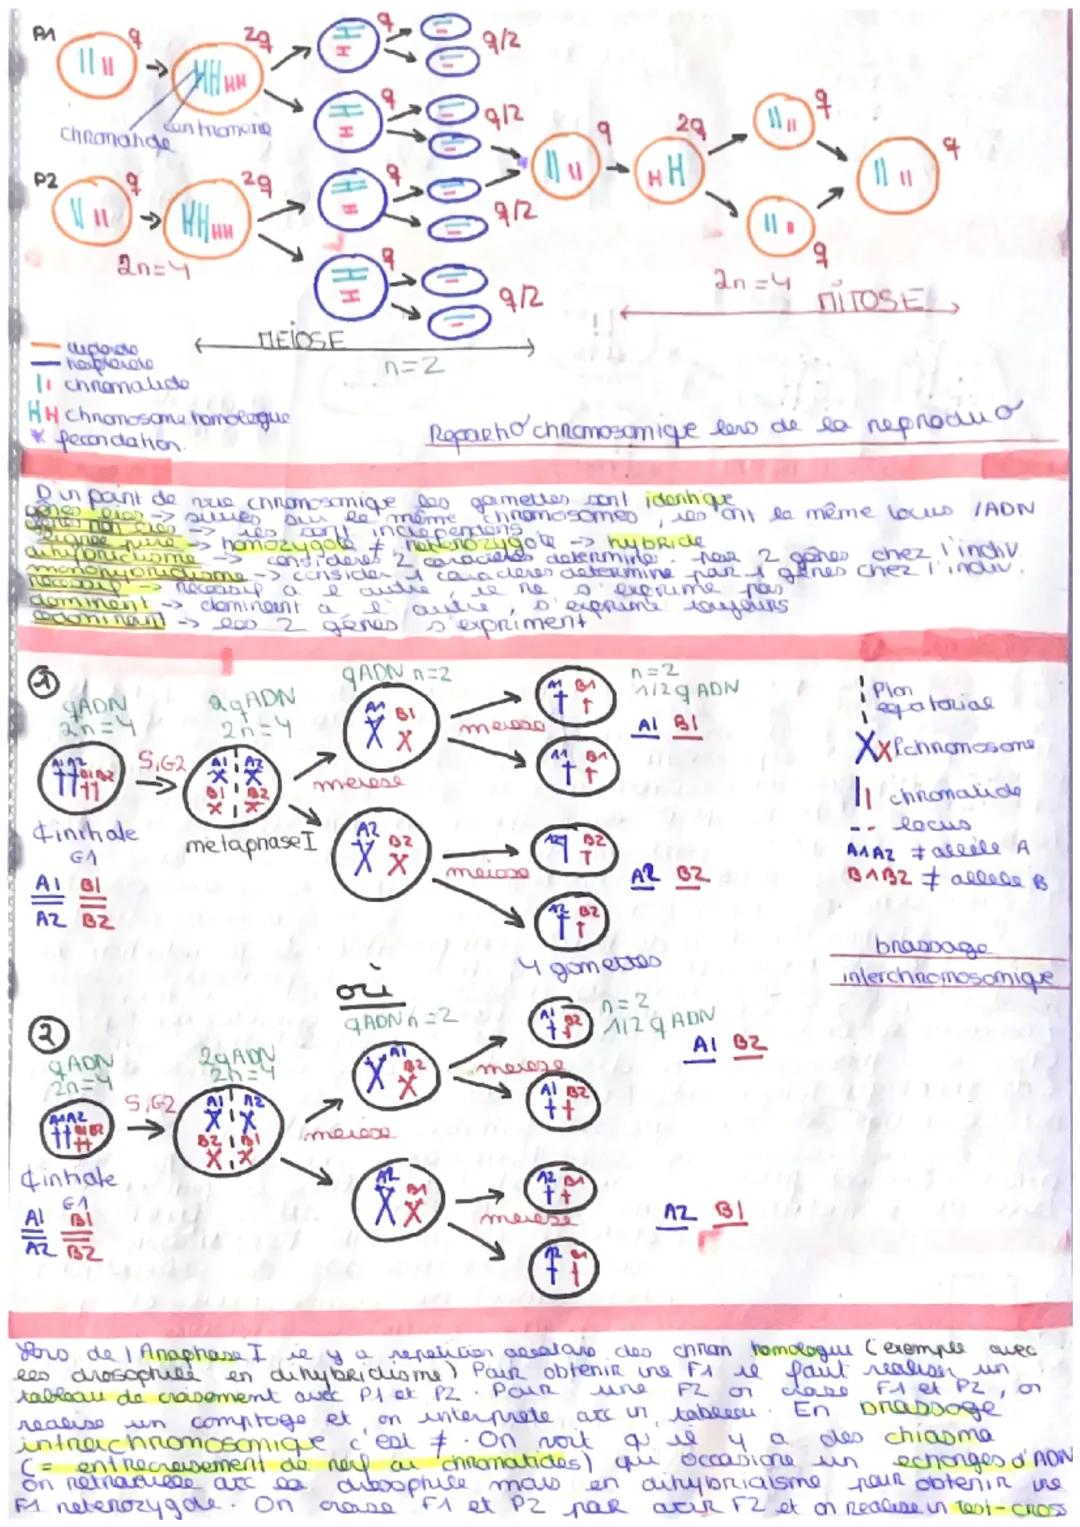 P1
q
2q
q
q/2
chromatide
centromère
q
q/2
q
2q
q
q
P2
q
2q
q
q/2
2n=4
q
q/2
q
2n=4
MITOSE
MEIOSE
n=2
diploide
haploide
chromatide
chromosome homologue
fecondation.
Repart° chromosomique lors de la reproduc°
D'un point de vue chromosomique les gametes sont identique
gènes liés -> situés sur le même chromosomes, ils ont le même locus /ADN
gènes non liés -> ils sont indépendans
lignée pure -> homozygote ≠ heterozygote -> hybride
dihybridisme -> considères 2 caractères determine par 2 gènes chez l'indiv.
monohybridisme -> consider 1 caractères determine par 1 gènes chez l'indiv.
recessif -> récessif a l'autre, il ne s'exprime pas
dominent -> dominent a l'autre, s'exprime toujours
codominent -> les 2 gènes s'expriment
1
qADN
2n=4
2qADN
2n=4
qADN n=2
n=2
1/2 q ADN
A1 B1
S,G2
meiose
meiose
métaphase I
¢ initiale
G1
A1 B1
A2 B2
meiose
A2 B2
4 gametes
Plan
equatorial
chromosome
chromatide
locus
A1A2 ≠ allèle A
B1B2 ≠ allele B
brassage
interchromosomique
ou
2
qADN
2n=4
2qADN
2n=4
qADN n=2
n=2
1/2 q ADN
A1 B2
S,G2
meiose
meiose
¢ initiale
G1
A1 B1
A2 B2
meiose
A2 B1
Lors de l'Anaphase I il y a repetition aléatoire des chrom homologue (exemple avec
les drosophile en dihybridisme) Pour obtenir une F1 il faut realiser un
tableau de croisement avec P1 et P2. Pour une F2 on croise F1 et P2, on
realise un comptage et on interprete avec un tableau. En brassage
intrachromosomique c'est ≠. On voit qu'il y a des chiasma
(= entrecroisement de chromatides) qui occasione un echanges d'ADN
on retravaille avec la drosophile mais en dihybridisme pour obtenir une
F1 heterozygote. On croise F1 et P2 pour avoir F2 et on realise un test-cross